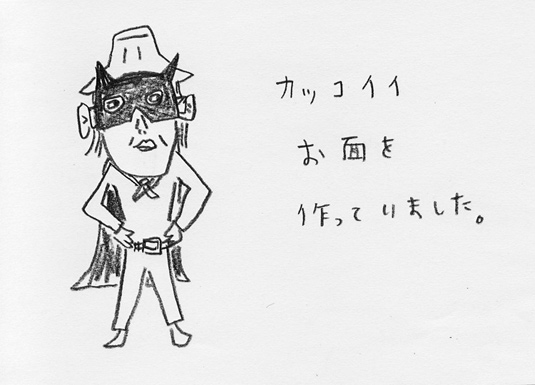 カッコイイ
お面を
作っていました。